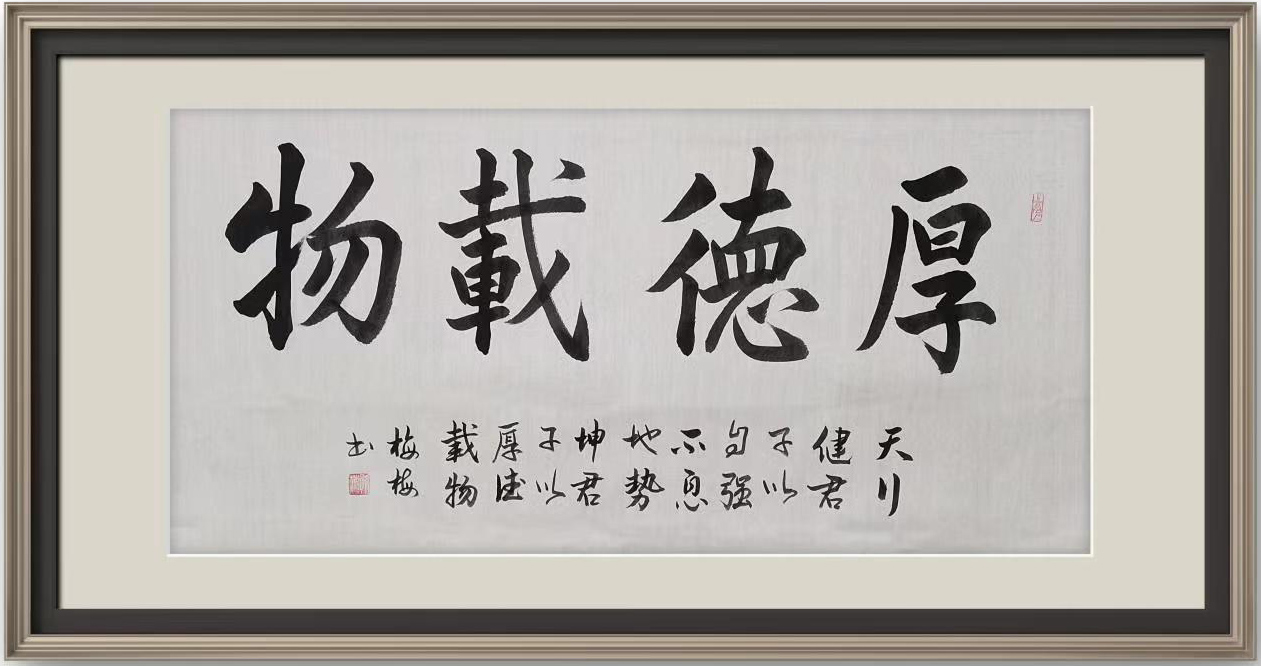 厚德載物
天行
健君
子以
自强
不息
地势
坤君
子以
厚德
載物
梅梅
书